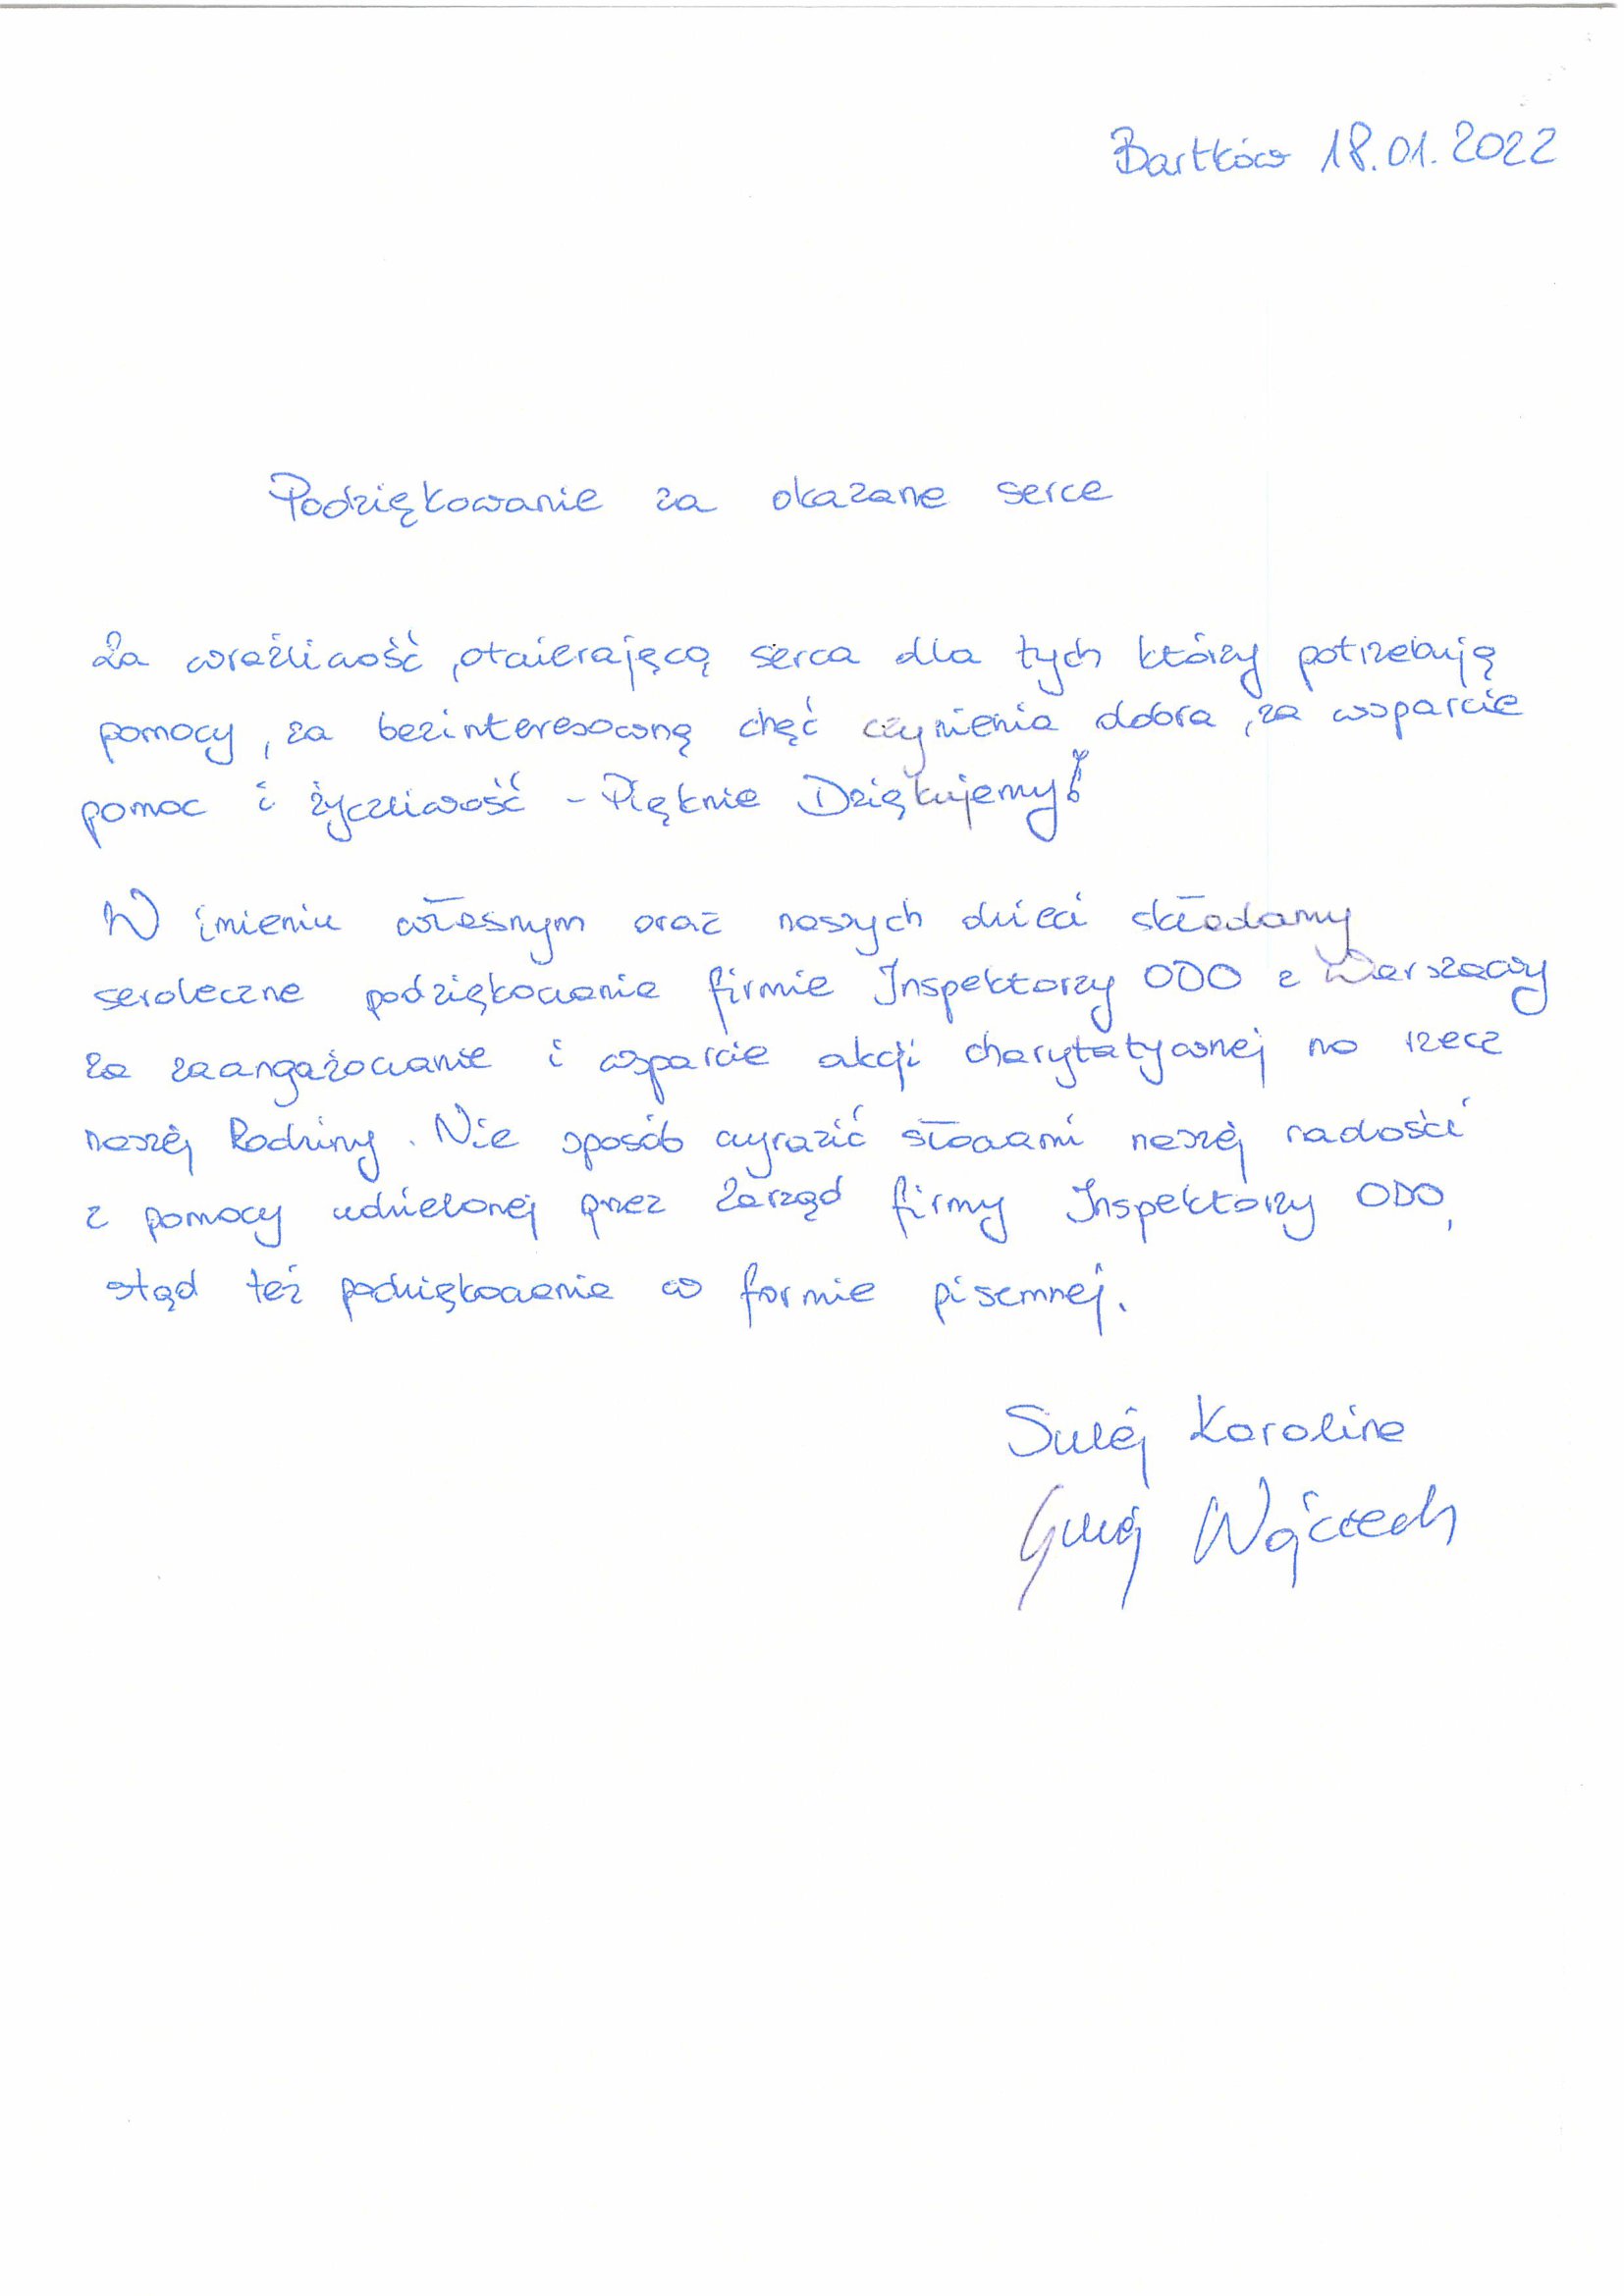 Bartków 18.01.2022
Podziękowanie za okazane serce
Za wrażliwość, otwierającą serca dla tych którzy potrzebują
pomocy, za bezinteresowną chęć czynienia dobra, za wsparcie
pomoc i życzliwość - Pięknie Dziękujemy!
W imieniu własnym oraz naszych dzieci składamy
serdeczne podziękowania firmie Inspektorzy ODO z Warszawy
za zaangażowanie i wsparcie akcji charytatywnej na rzecz
naszej Rodziny. Nie sposób wyrazić słowami naszej radości
z pomocy udzielonej przez Zarząd firmy Inspektorzy ODO,
stąd też podziękowania w formie pisemnej.
Sulej Karolina
Sulej Wojciech